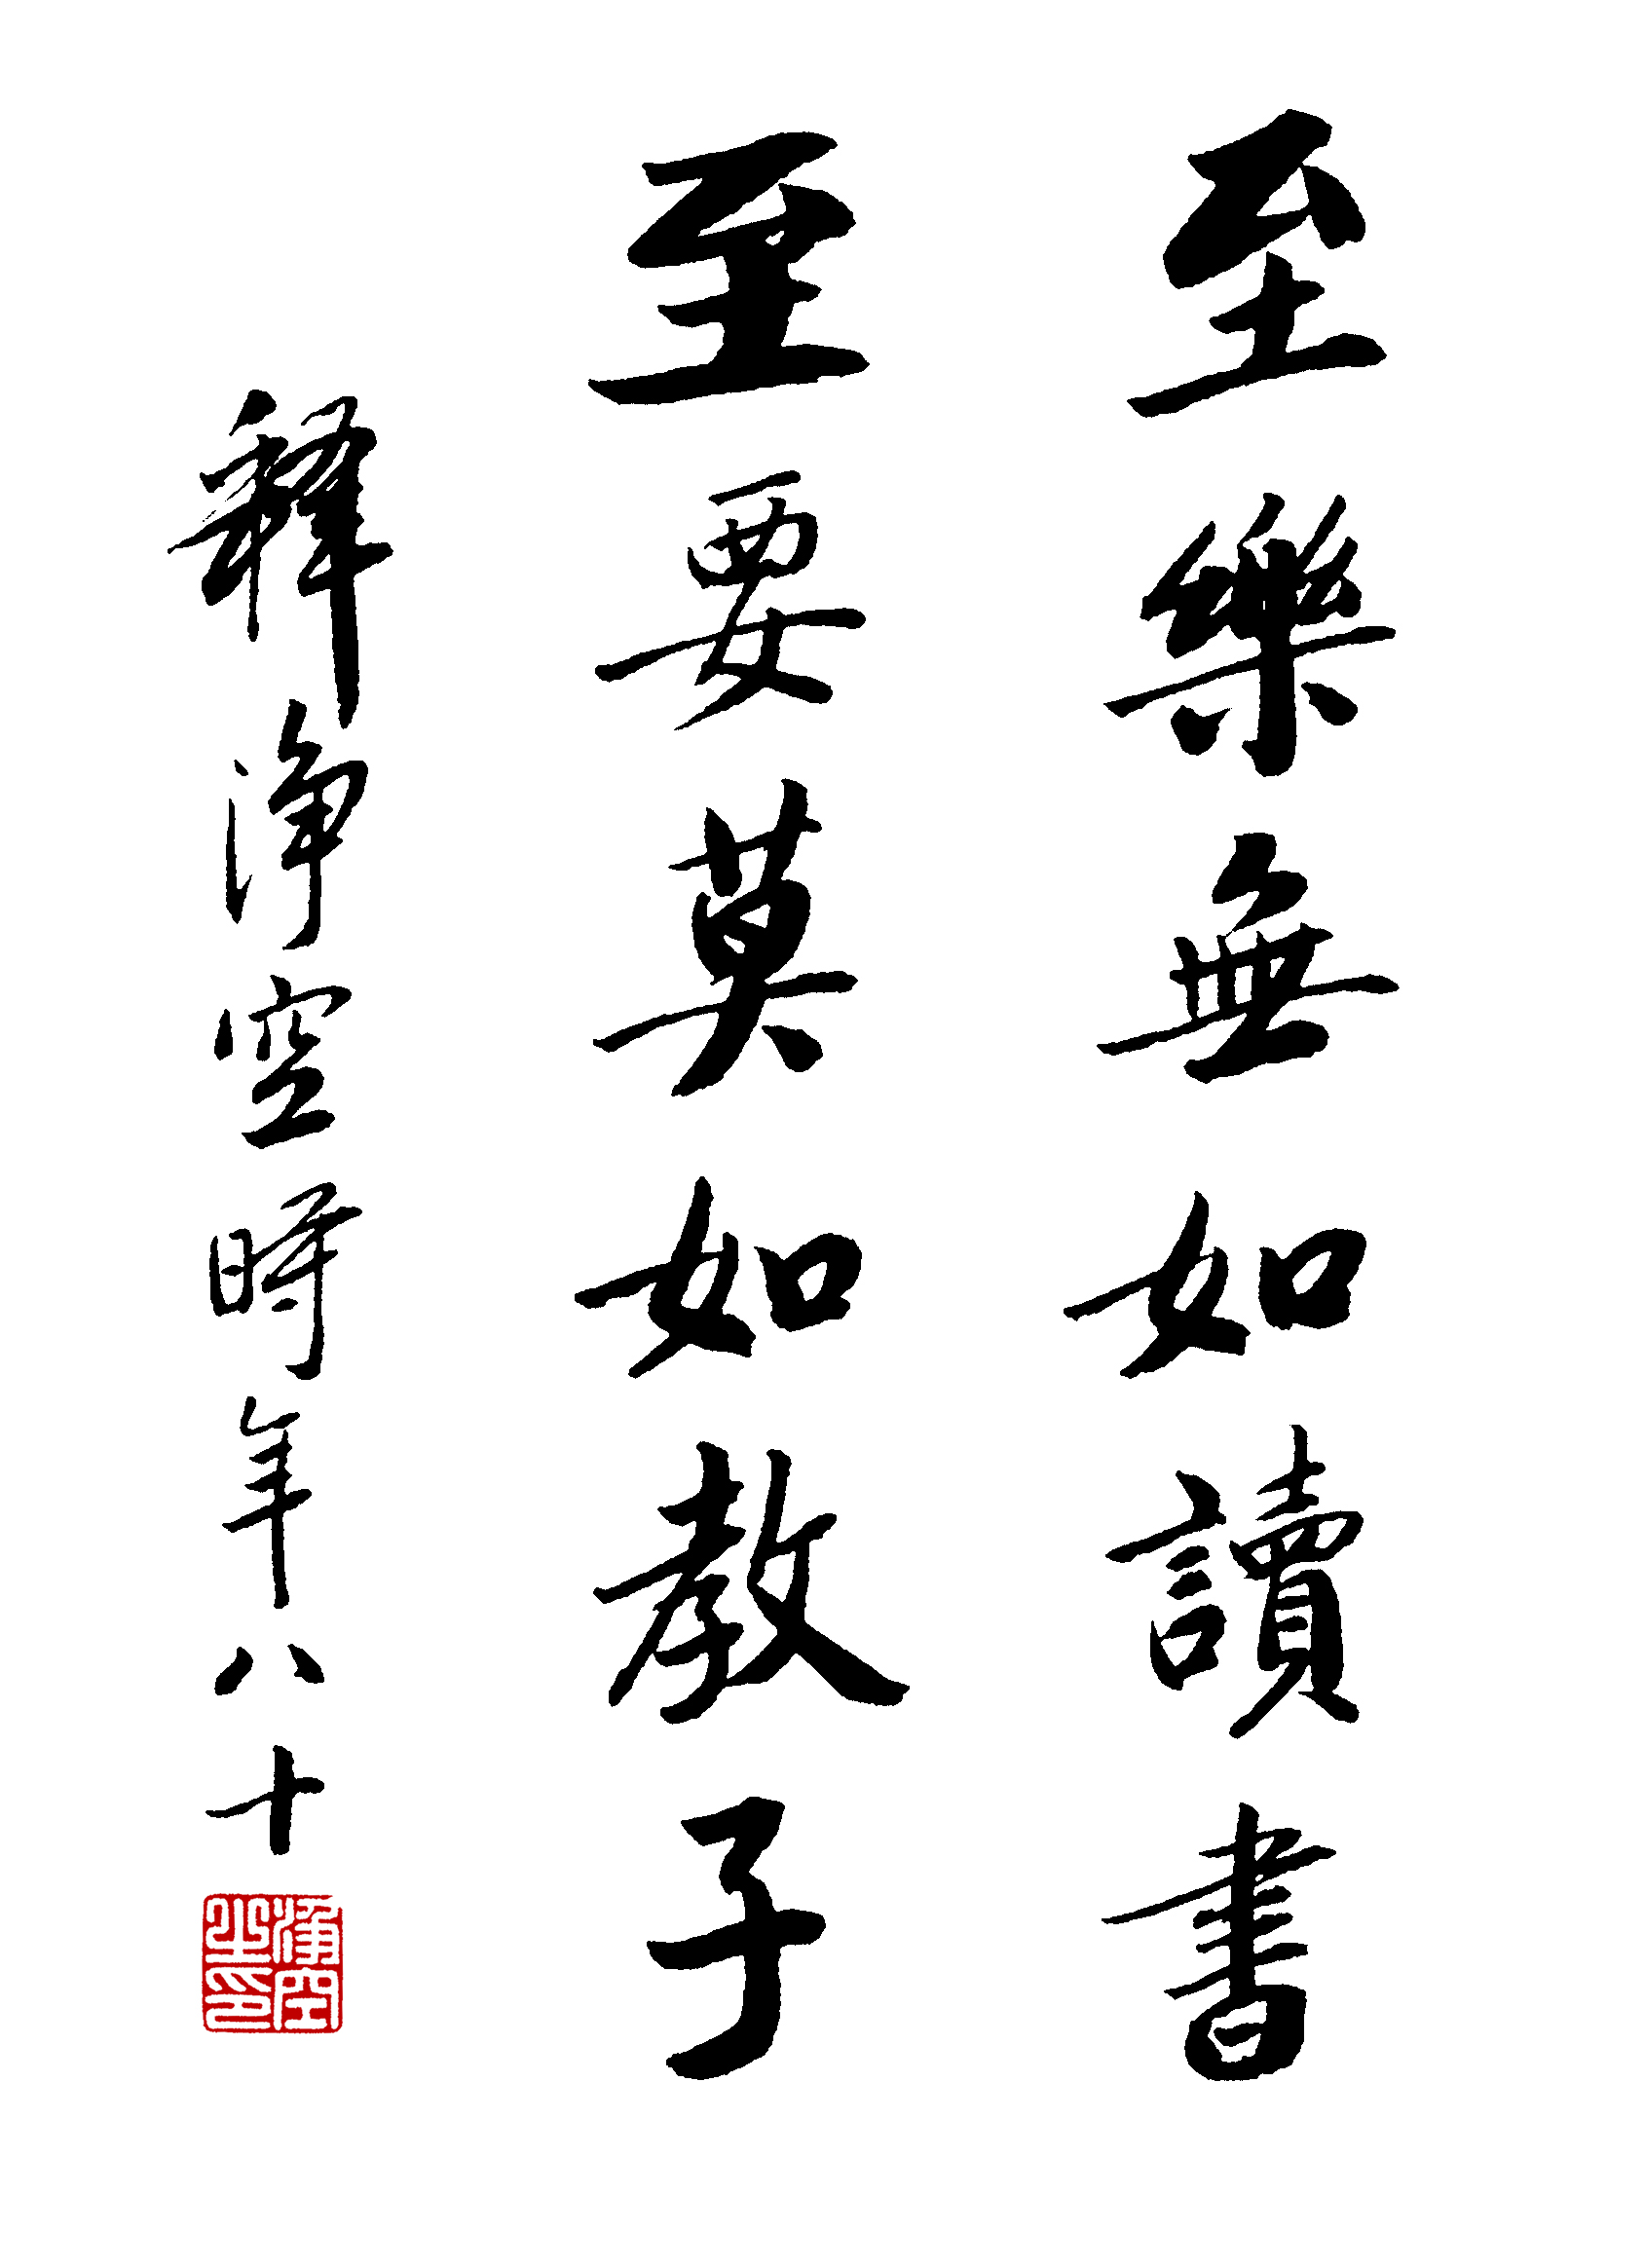 至樂無如讀書
至要莫如教子
釋淨空時年八十
淨空之印